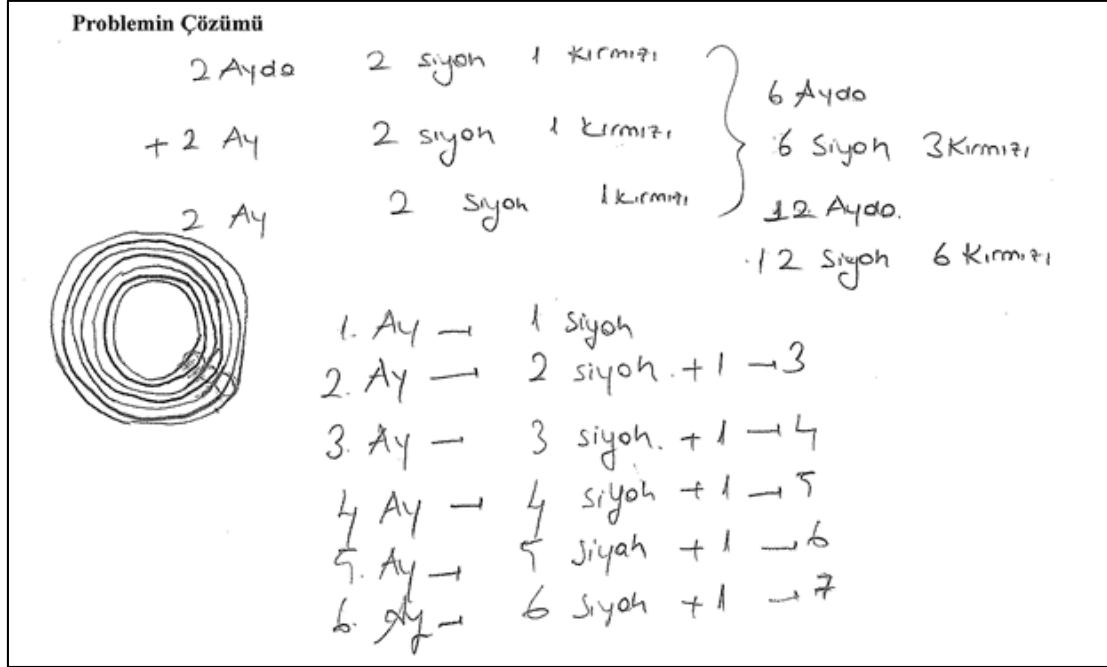 Problemin Çözümü
2 Ayda 2 siyah 1 kırmızı
+ 2 Ay 2 siyah 1 kırmızı
2 Ay 2 siyah 1 kırmızı
6 Ayda
6 Siyah 3 Kırmızı
12 Ayda.
12 Siyah 6 Kırmızı
1. Ay — 1 siyah
2. Ay — 2 siyah. + 1 → 3
3. Ay — 3 siyah. + 1 → 4
4 Ay — 4 siyah + 1 → 5
5. Ay → 5 siyah + 1 → 6
6. Ay — 6 siyah + 1 → 7